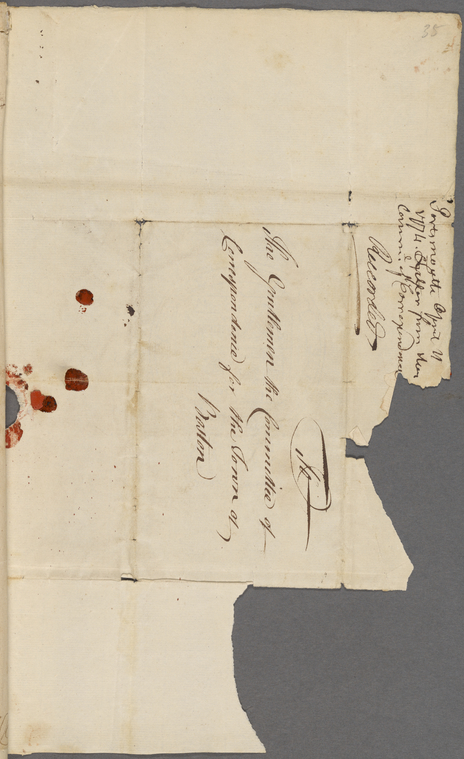 38
Portsmouth April 11
1774. Letter from their
Comm.e of Correspondence
Recorded
To
The Gentlemen the Committee of
Correspondence for the Town of
Boston